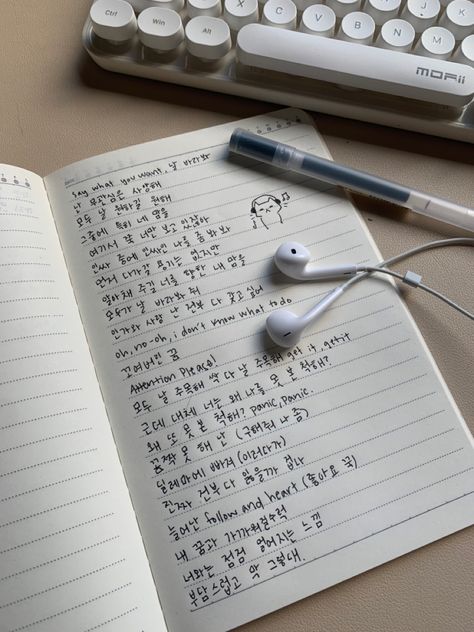 Ctrl Win Alt Z X C V B N M
MOFii
say what you want, 날 바라봐
난 무관심은 사양해
모두 날 원하길 원해
그중에 특히 네 맘을
여기서 딱 너만 보고 있잖아
인싸 중에 인싸인 나를 좀 봐봐
먼저 다가갈 용기는 없지만
알아채 주길 너를 향한 내 맘을
모두가 날 바라봐 줘
인기와 사랑 난 전부 다 갖고 싶어
oh, no-oh, i don't know what to do
꼬여버린 꿈
Attention Please!
모두 날 주목해 싹 다 날 주목해 get it, get it
근데 대체 너는 왜 나를 못 본 척해?
왜 또 못 본 척해? panic, panic
꼼짝 못 해 난 (구해줘 나 좀)
딜레마에 빠져 (이러다가)
진짜 전부 다 잃을까 겁나
늘어난 follow and heart (좋아요 꾹)
내 꿈과 가까워질수록
너와는 점점 멀어지는 느낌
부담스럽고 막 그렇대.